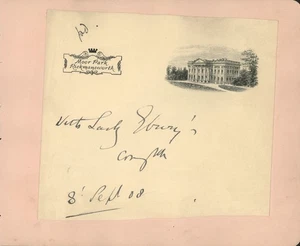 Moor Park
Rickmansworth
With Lady Ebury's
Compts
8' Sept 08